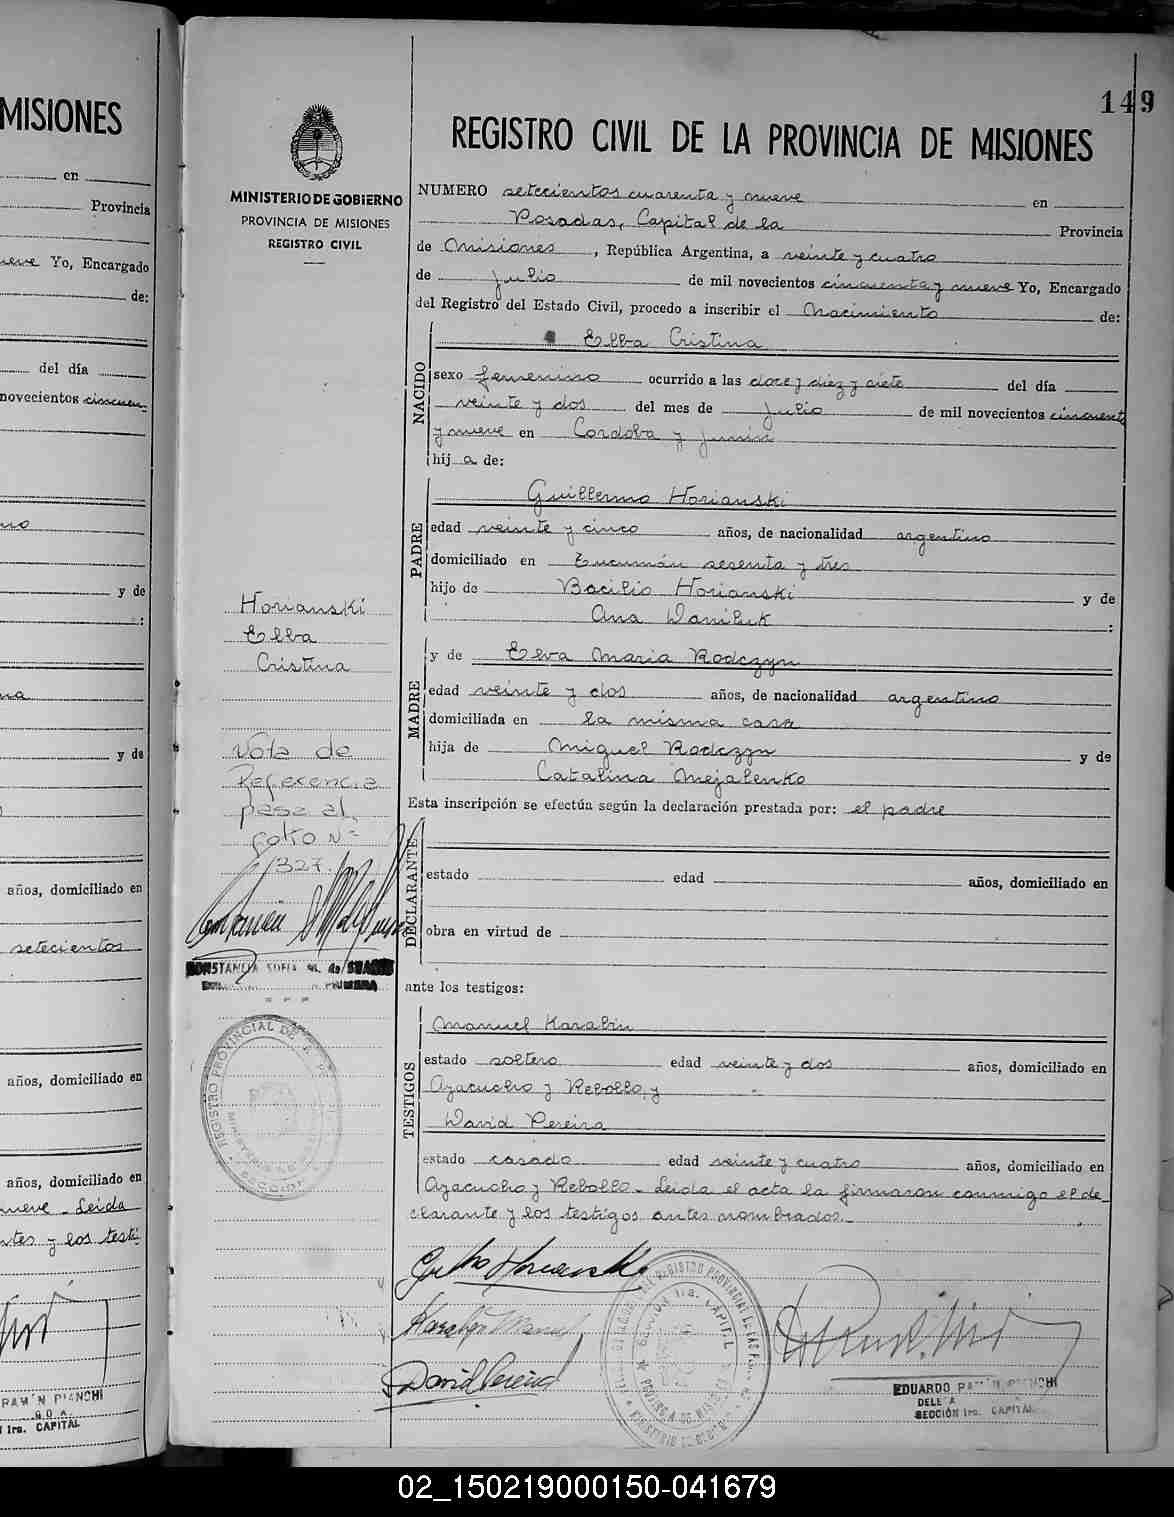 MISIONES
en
Provincia
Yo, Encargado
de:
del día
novecientos cincuen-
y de
y de
años, domiciliado en
setecientos
años, domiciliado en
años, domiciliado en
nueve - Leida
y los testi
149
MINISTERIO DE GOBIERNO
PROVINCIA DE MISIONES
REGISTRO CIVIL
Horianski
Elba
Cristina
Nota de
Referencia
pasa al
folio Nº
327.
REGISTRO CIVIL DE LA PROVINCIA DE MISIONES
NUMERO setecientos cuarenta y nueve en
Posadas, Capital de la Provincia
de Misiones, República Argentina, a veinte y cuatro
de Julio de mil novecientos cincuenta y nueve Yo, Encargado
del Registro del Estado Civil, procedo a inscribir el Nacimiento de:
NACIDO
Elba Cristina
sexo femenino ocurrido a las doce y diez y siete del día
veinte y dos del mes de Julio de mil novecientos cincuenta
y nueve en Cordoba y Junin
hij a de:
PADRE
Guillermo Horianski
edad veinte y cinco años, de nacionalidad argentino
domiciliado en Tucumán sesenta y tres
hijo de Bacilio Horianski y de
Ana Waniluk:
MADRE
y de Elva Maria Rodczyn
edad veinte y dos años, de nacionalidad argentino
domiciliada en la misma casa
hija de Miguel Rodczyn y de
Catalina Mejalenko
Esta inscripción se efectúa según la declaración prestada por: el padre
DECLARANTE
estado edad años, domiciliado en
obra en virtud de
ante los testigos:
TESTIGOS
Manuel Karabin
estado soltero edad veinte y dos años, domiciliado en
Ayacucho y Rebollo, y
David Pereira
estado casado edad veinte y cuatro años, domiciliado en
Ayacucho y Rebollo - Leida el acta la firmaron conmigo el de-
clarante y los testigos antes nombrados.-
David Pereira
EDUARDO RAMÓN BIANCHI
SECCIÓN 1ra. CAPITAL
02_150219000150-041679